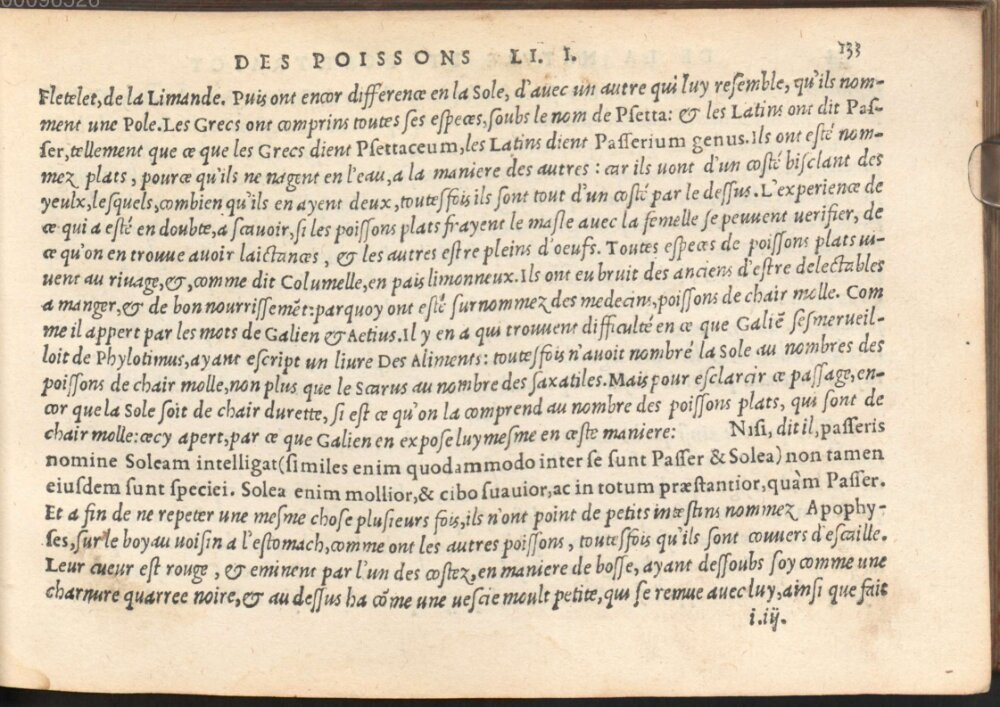 00098526
DES POISSONS LI. I. 133
Fletelet, de la Limande. Puis ont encor difference en la Sole, d'auec un autre qui luy resemble, qu'ils nom-
ment une Pole. Les Grecs ont comprins toutes ses especes, soubs le nom de Psetta: & les Latins ont dit Pas-
ser, tellement que ce que les Grecs dient Psettaceum, les Latins dient Passerium genus. Ils ont esté nom-
mez plats, pource qu'ils ne nagent en l'eau, a la maniere des autres: car ils uont d'un costé bisclant des
yeulx, lesquels, combien qu'ils en ayent deux, toutesfois ils sont tout d'un costé par le dessus. L'experience de
ce qui a esté en doubte, a scauoir, si les poissons plats frayent le masle auec la femelle se peuuent uerifier, de
ce qu'on en trouue auoir laictances, & les autres estre pleins d'oeufs. Toutes especes de poissons plats ui-
uent au riuage, &, comme dit Columelle, en païs limonneux. Ils ont eu bruit des anciens d'estre delectables
a manger, & de bon nourrissemēt: parquoy ont esté surnommez des medecins, poissons de chair molle. Com
me il appert par les mots de Galien & Aetius. Il y en a qui trouuent difficulté en ce que Galiē s'esmerueil-
loit de Phylotimus, ayant escript un liure Des Aliments: toutesfois n'auoit nombré la Sole au nombres des
poissons de chair molle, non plus que le Scarus au nombre des saxatiles. Mais pour esclarcir ce passage, en-
cor que la Sole soit de chair durette, si est ce qu'on la comprend au nombre des poissons plats, qui sont de
chair molle: cecy apert, par ce que Galien en expose luymesme en ceste maniere: Nisi, dit il, passeris
nomine Soleam intelligat (similes enim quodammodo inter se sunt Passer & Solea) non tamen
eiusdem sunt speciei. Solea enim mollior, & cibo suauior, ac in totum præstantior, quàm Passer.
Et a fin de ne repeter une mesme chose plusieurs fois, ils n'ont point de petits intestins nommez Apophy-
ses, sur le boyau uoisin a l'estomach, comme ont les autres poissons, toutesfois qu'ils sont couuers d'escaille.
Leur cueur est rouge, & eminent par l'un des costez, en maniere de bosse, ayant dessoubs soy comme une
charnure quarree noire, & au dessus ha cōme une uescie moult petite, qui se remue auec luy, ainsi que fait
i.iij.